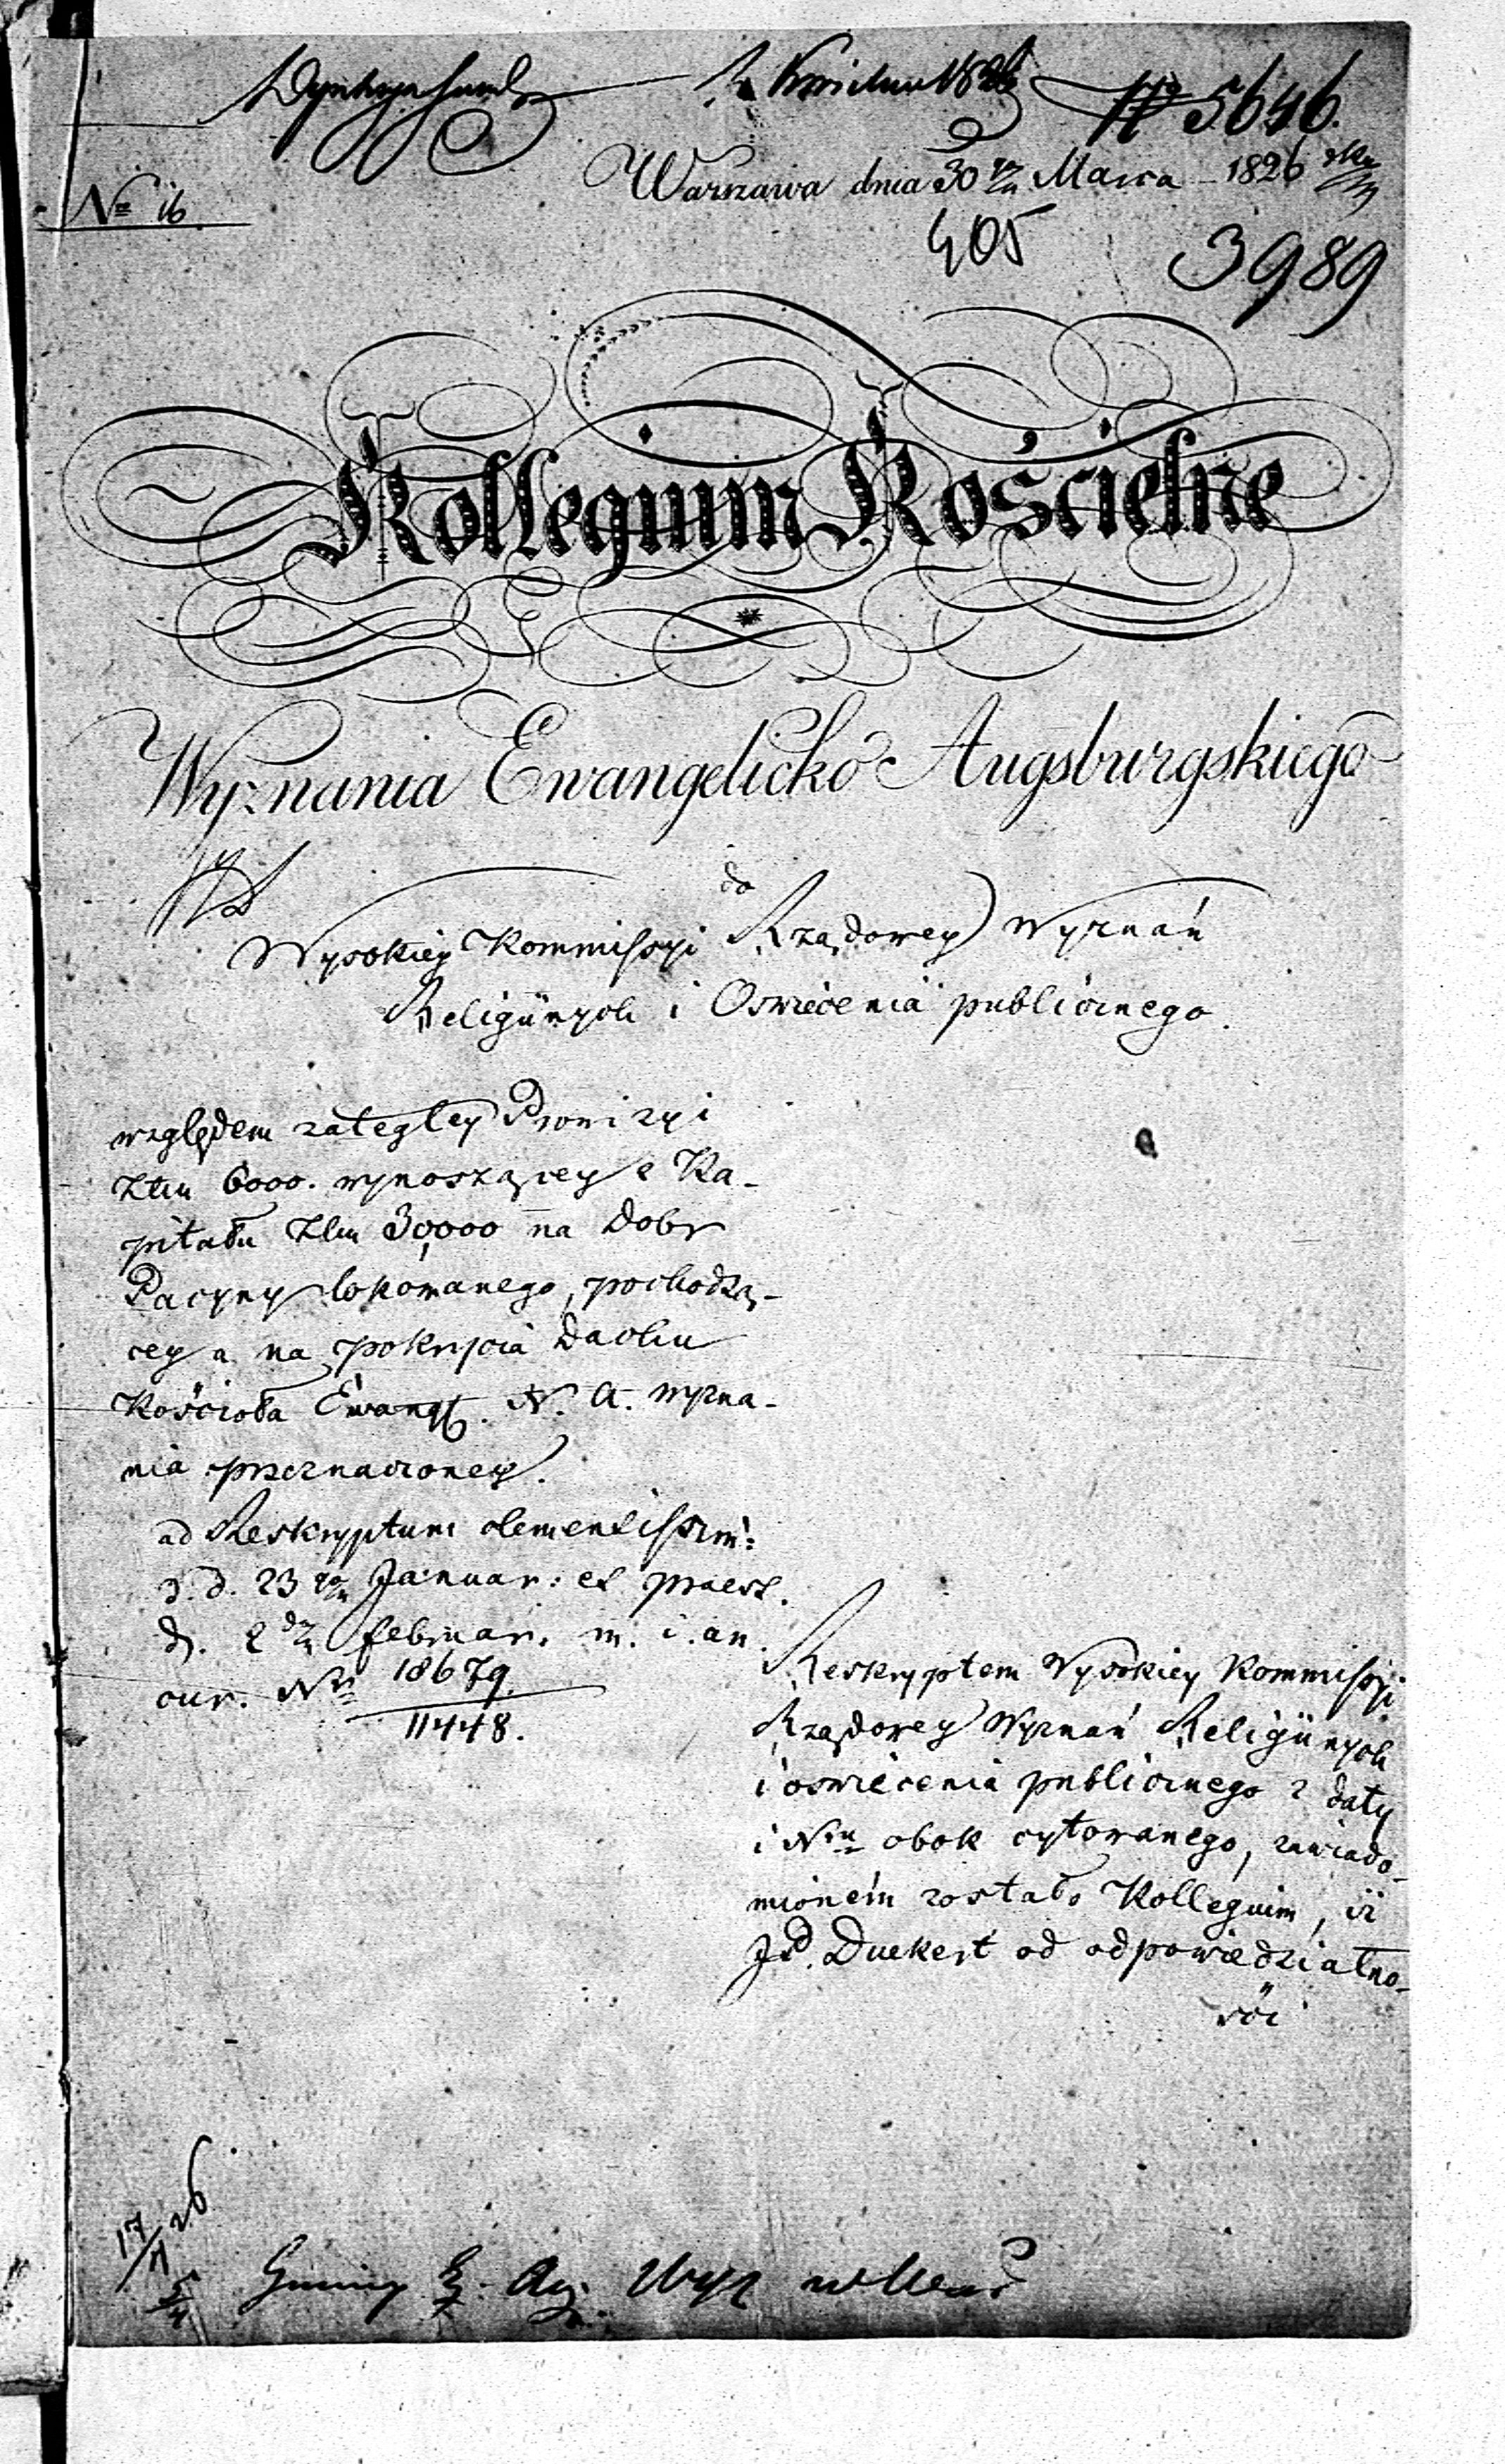 Kwietnia 1826
№ 5646.
Warszawa dnia 30 go Marca 1826 rku
№ 16.
405
3989
Kollegium Kościelne
Wyznania Ewangelicko Augsburgskiego
do
Wysokiey Kommissyi Rządowey Wyznań
Religiinych i Oswiecenia publicznego.
względem zategłey Prowizyi
Złtu 6000. wynoszącey z Ka-
pitału Złtu 30,000 na Dobr
Pacyny lokowanego, pochodzą-
cey a na pokrycia Dachu
Kościoła Ewang. N. A. wyzna-
nia przeznaczoney.
ad Reskryptum clementissim:
d. d. 23 go Januar: et praest.
d. 2 da februar. m. i. an.
cur. Nr 18679.
11448.
Reskryptem Wysokiey Kommissyi
Rządowey Wyznań Religiinych
i oswiecenia publicznego z daty
i Nru obok cytowanego, zawiado-
mioném zostało Kollegium, iż
JP. Duckert od odpowiedziałno-
ści
17/4 26
5/4
Gminy E. Aug. Wyz